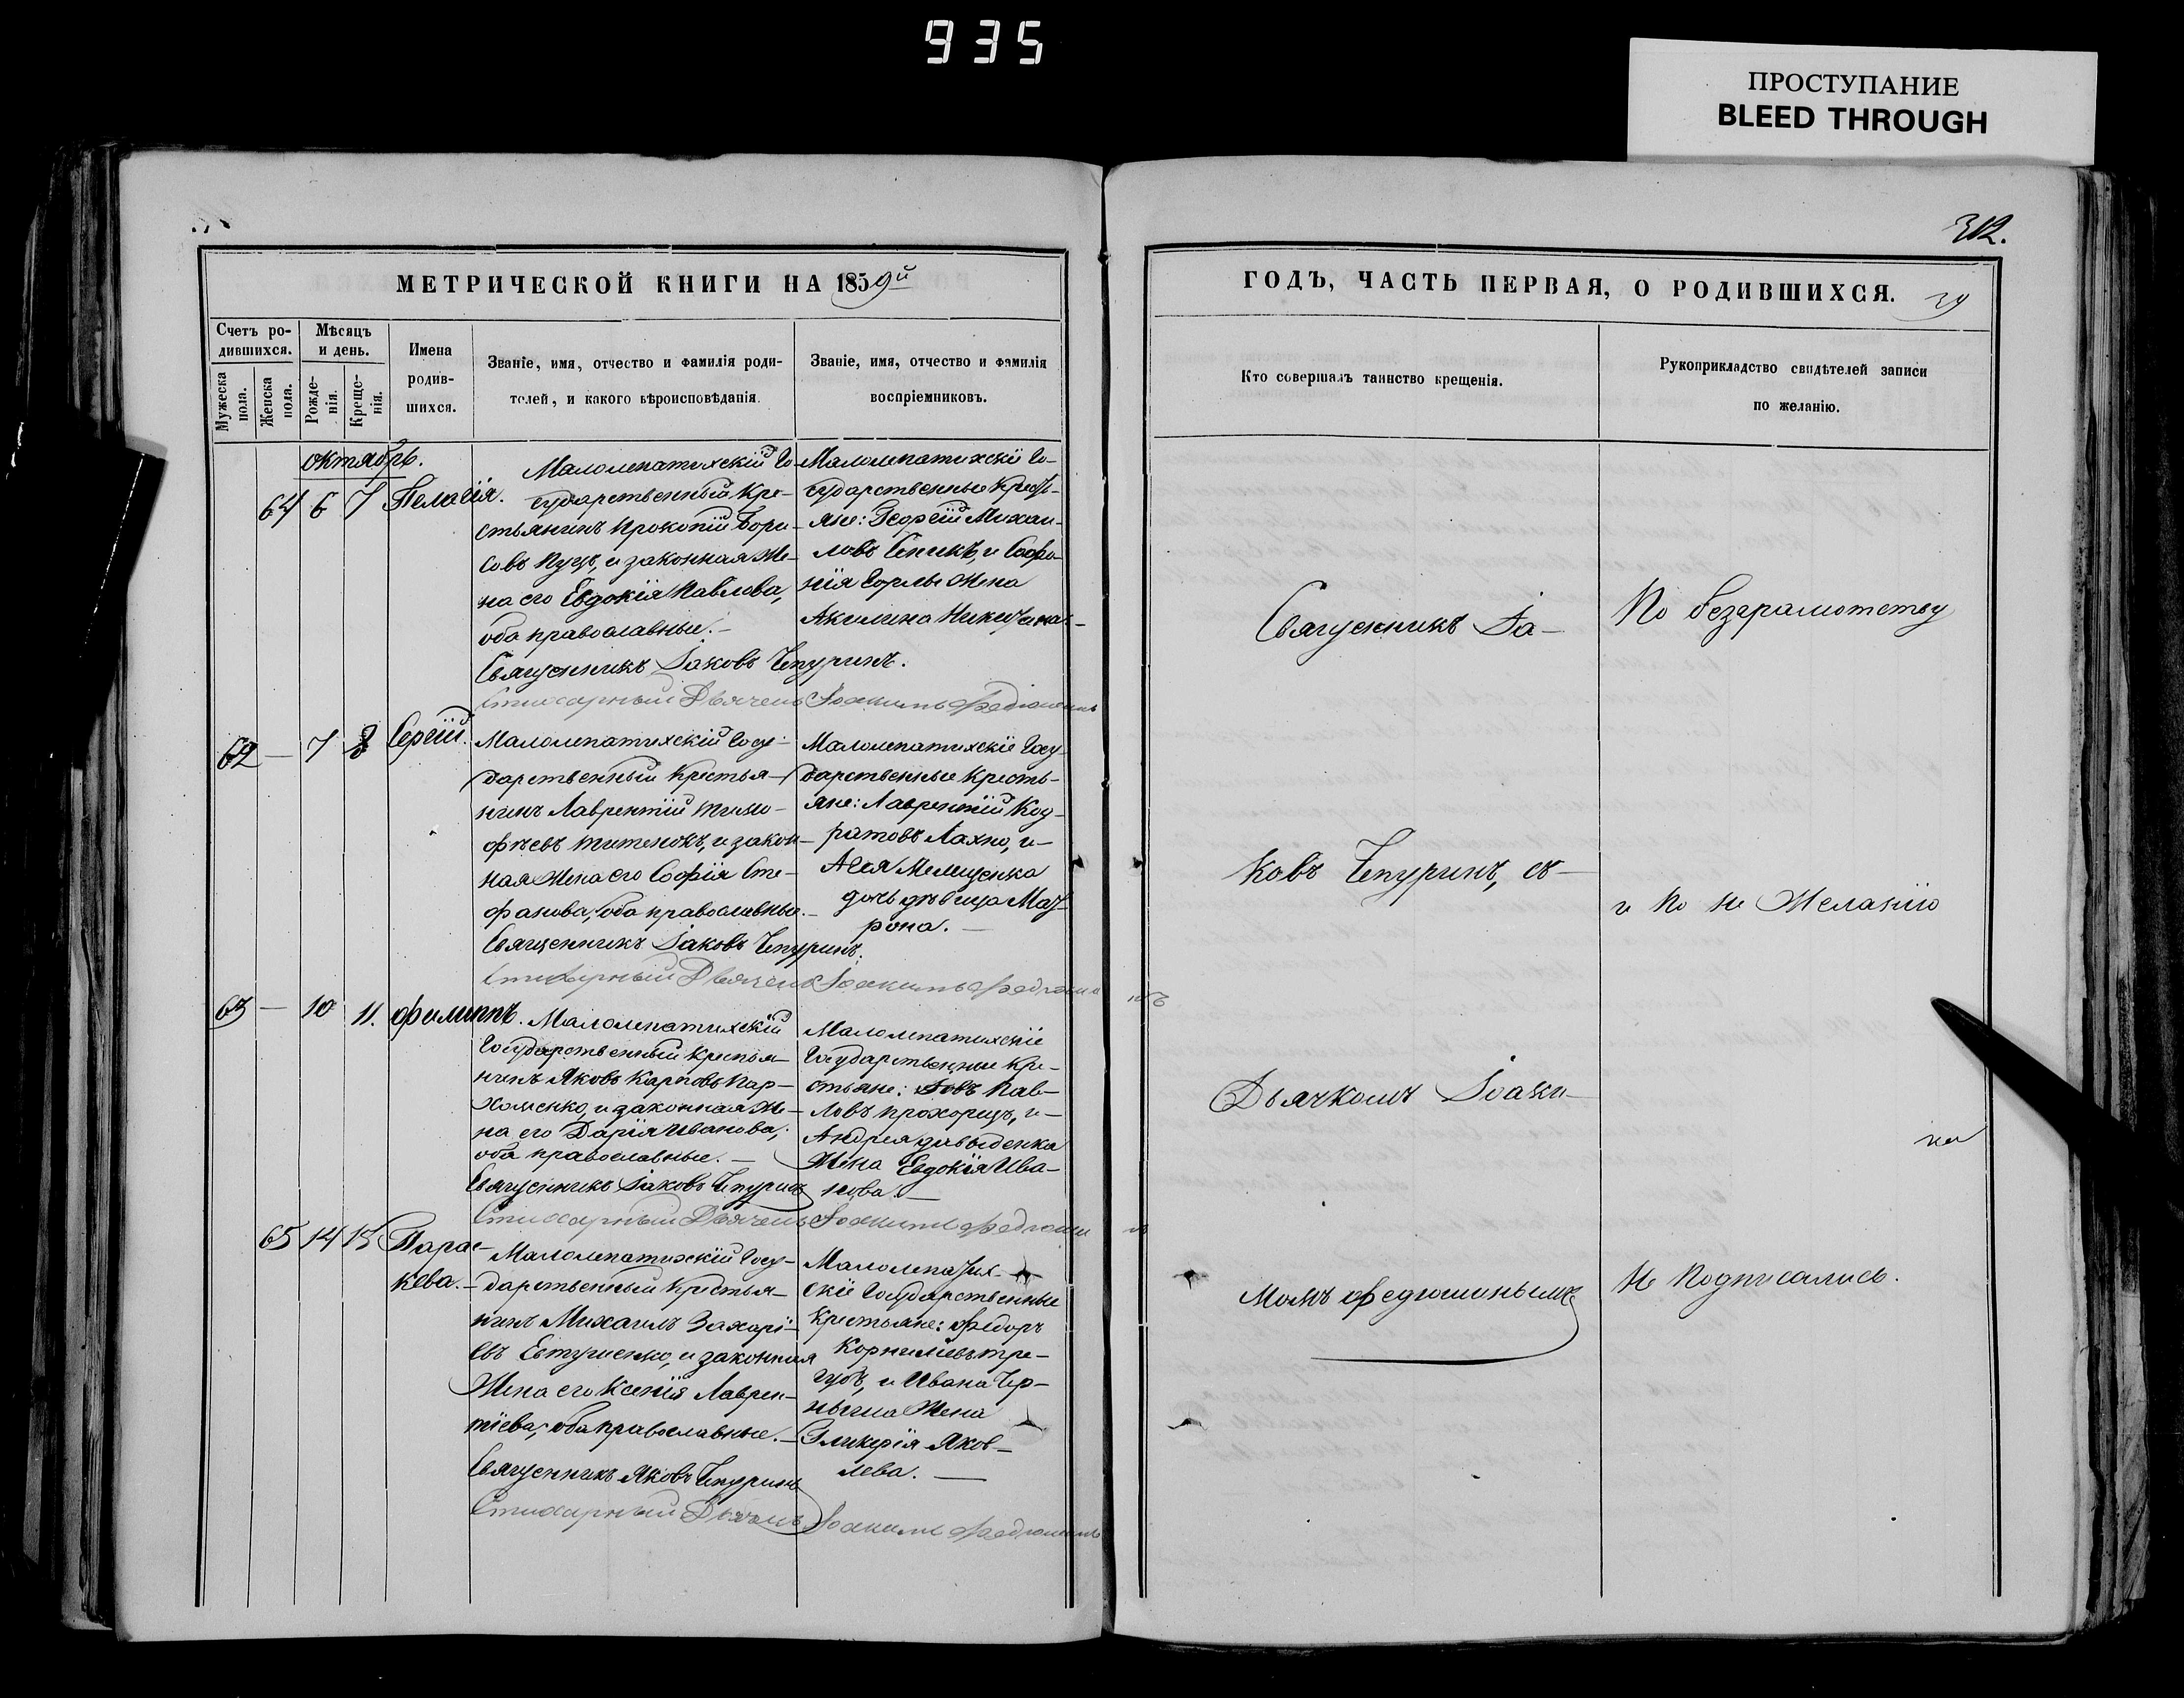 935
ПРОСТУПАНИЕ
BLEED THROUGH
312.
МЕТРИЧЕСКОЙ КНИГИ НА 1859й
ГОДЪ, ЧАСТЬ ПЕРВАЯ, О РОДИВШИХСЯ.
39
Счетъ ро-
дившихся.
Мужеска пола.
Женска пола.
Мѣсяцъ
и день.
Рожде-
нія.
Креще-
нія.
Имена
родив-
шихся.
Званіе, имя, отчество и фамилія роди-
телей, и какого вѣроисповѣданія.
Званіе, имя, отчество и фамилія
воспріемниковъ.
Кто совершалъ таинство крещенія.
Рукоприкладство свидѣтелей записи
по желанію.
октябрь.
64 6 7 Пелагія.
Малолепатихскій Го-
сударственный Кре-
стьянинъ Прокопій Бори-
совъ Пуцъ, и законная Же-
на его Евдокія Павлова,
оба православные.-
Священникъ Іаковъ Чепуринъ.
Стихарный Дьячекъ Іоакимъ Федюшинъ
Малолепатихскіе Го-
сударственные Кресть-
яне: Георгій Михаи-
ловъ Сеникъ, и Софо-
нія Горлы Жена
Акилина Никитина-
62 — 7 8 Сергій.
Малолепатихскій Госу-
дарственный Крестья-
нинъ Лаврентій Тимо-
фѣевъ Титенокъ, и закон-
ная Жена его Софія Сте-
фанова, оба православные.-
Священникъ Іаковъ Чепуринъ.
Стихарный Дьячекъ Іоакимъ Федюшинъ
Малолепатихскіе Госу-
дарственные Кресть-
яне: Лаврентій Код-
ратовъ Лахно, и-
Агея Мелещенка
дочь дѣвица Мат-
рона.-
63 — 10 11. Филиппъ.
Малолепатихскій
Государственный Крестья-
нинъ Яковъ Карповъ Пар-
хоменко, и законная Же-
на его Дарія Иванова;
оба православные.-
Священникъ Іаковъ Чепуринъ
Стихарный Дьячекъ Іоакимъ Федюшинъ
Малолепатихскіе
Государственные Кре-
стьяне: Іовъ Пав-
ловъ Прохорецъ, и-
Андрея Давыденка
Жена Евдокія Ива-
нова.-
65 14 15 Парас-
кева.-
Малолепатихскій Госу-
дарственный Крестья-
нинъ Михаилъ Захарі-
евъ Евтушенко, и законная
Жена его Ксенія Лаврен-
тіева; оба православные.-
Священникъ Яковъ Чепуринъ
Стихарный Дьячекъ Іоакимъ Федюшинъ
Малолепатих-
скіе Государственные
Крестьяне: Федоръ
Корниліевъ Тре-
губъ, и Ивана Чер-
ныша Жена
Гликерія Яков-
лева.-
Священникъ Іа-
ковъ Чепуринъ, съ-
Дьячкомъ Іоаки-
момъ Федюшинымъ
По безграмотству
и по не Желанію
не Подписались.